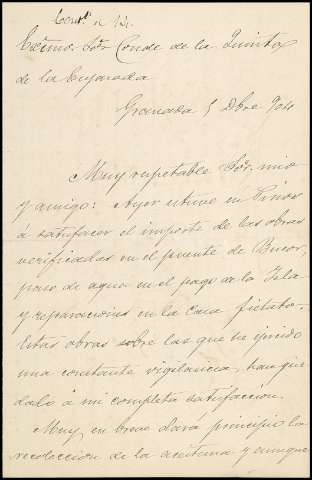 Excmo. Sor. Conde de la Quinta
de la Enjarada
Granada 5 Dbre 904
Muy respetable Sor. mio
y amigo: Ayer estuve en Pinos
á satisfacer el importe de las obras
verificadas en el puente de Bucor,
paso de agua en el pago de la Isla
y reparaciones en la Casa
Estas obras sobre las que he ejercido
una constante vigilancia, han que
dado á mi completa satisfacción.
Muy en breve dará principio la
recolección de la aceituna y aunque